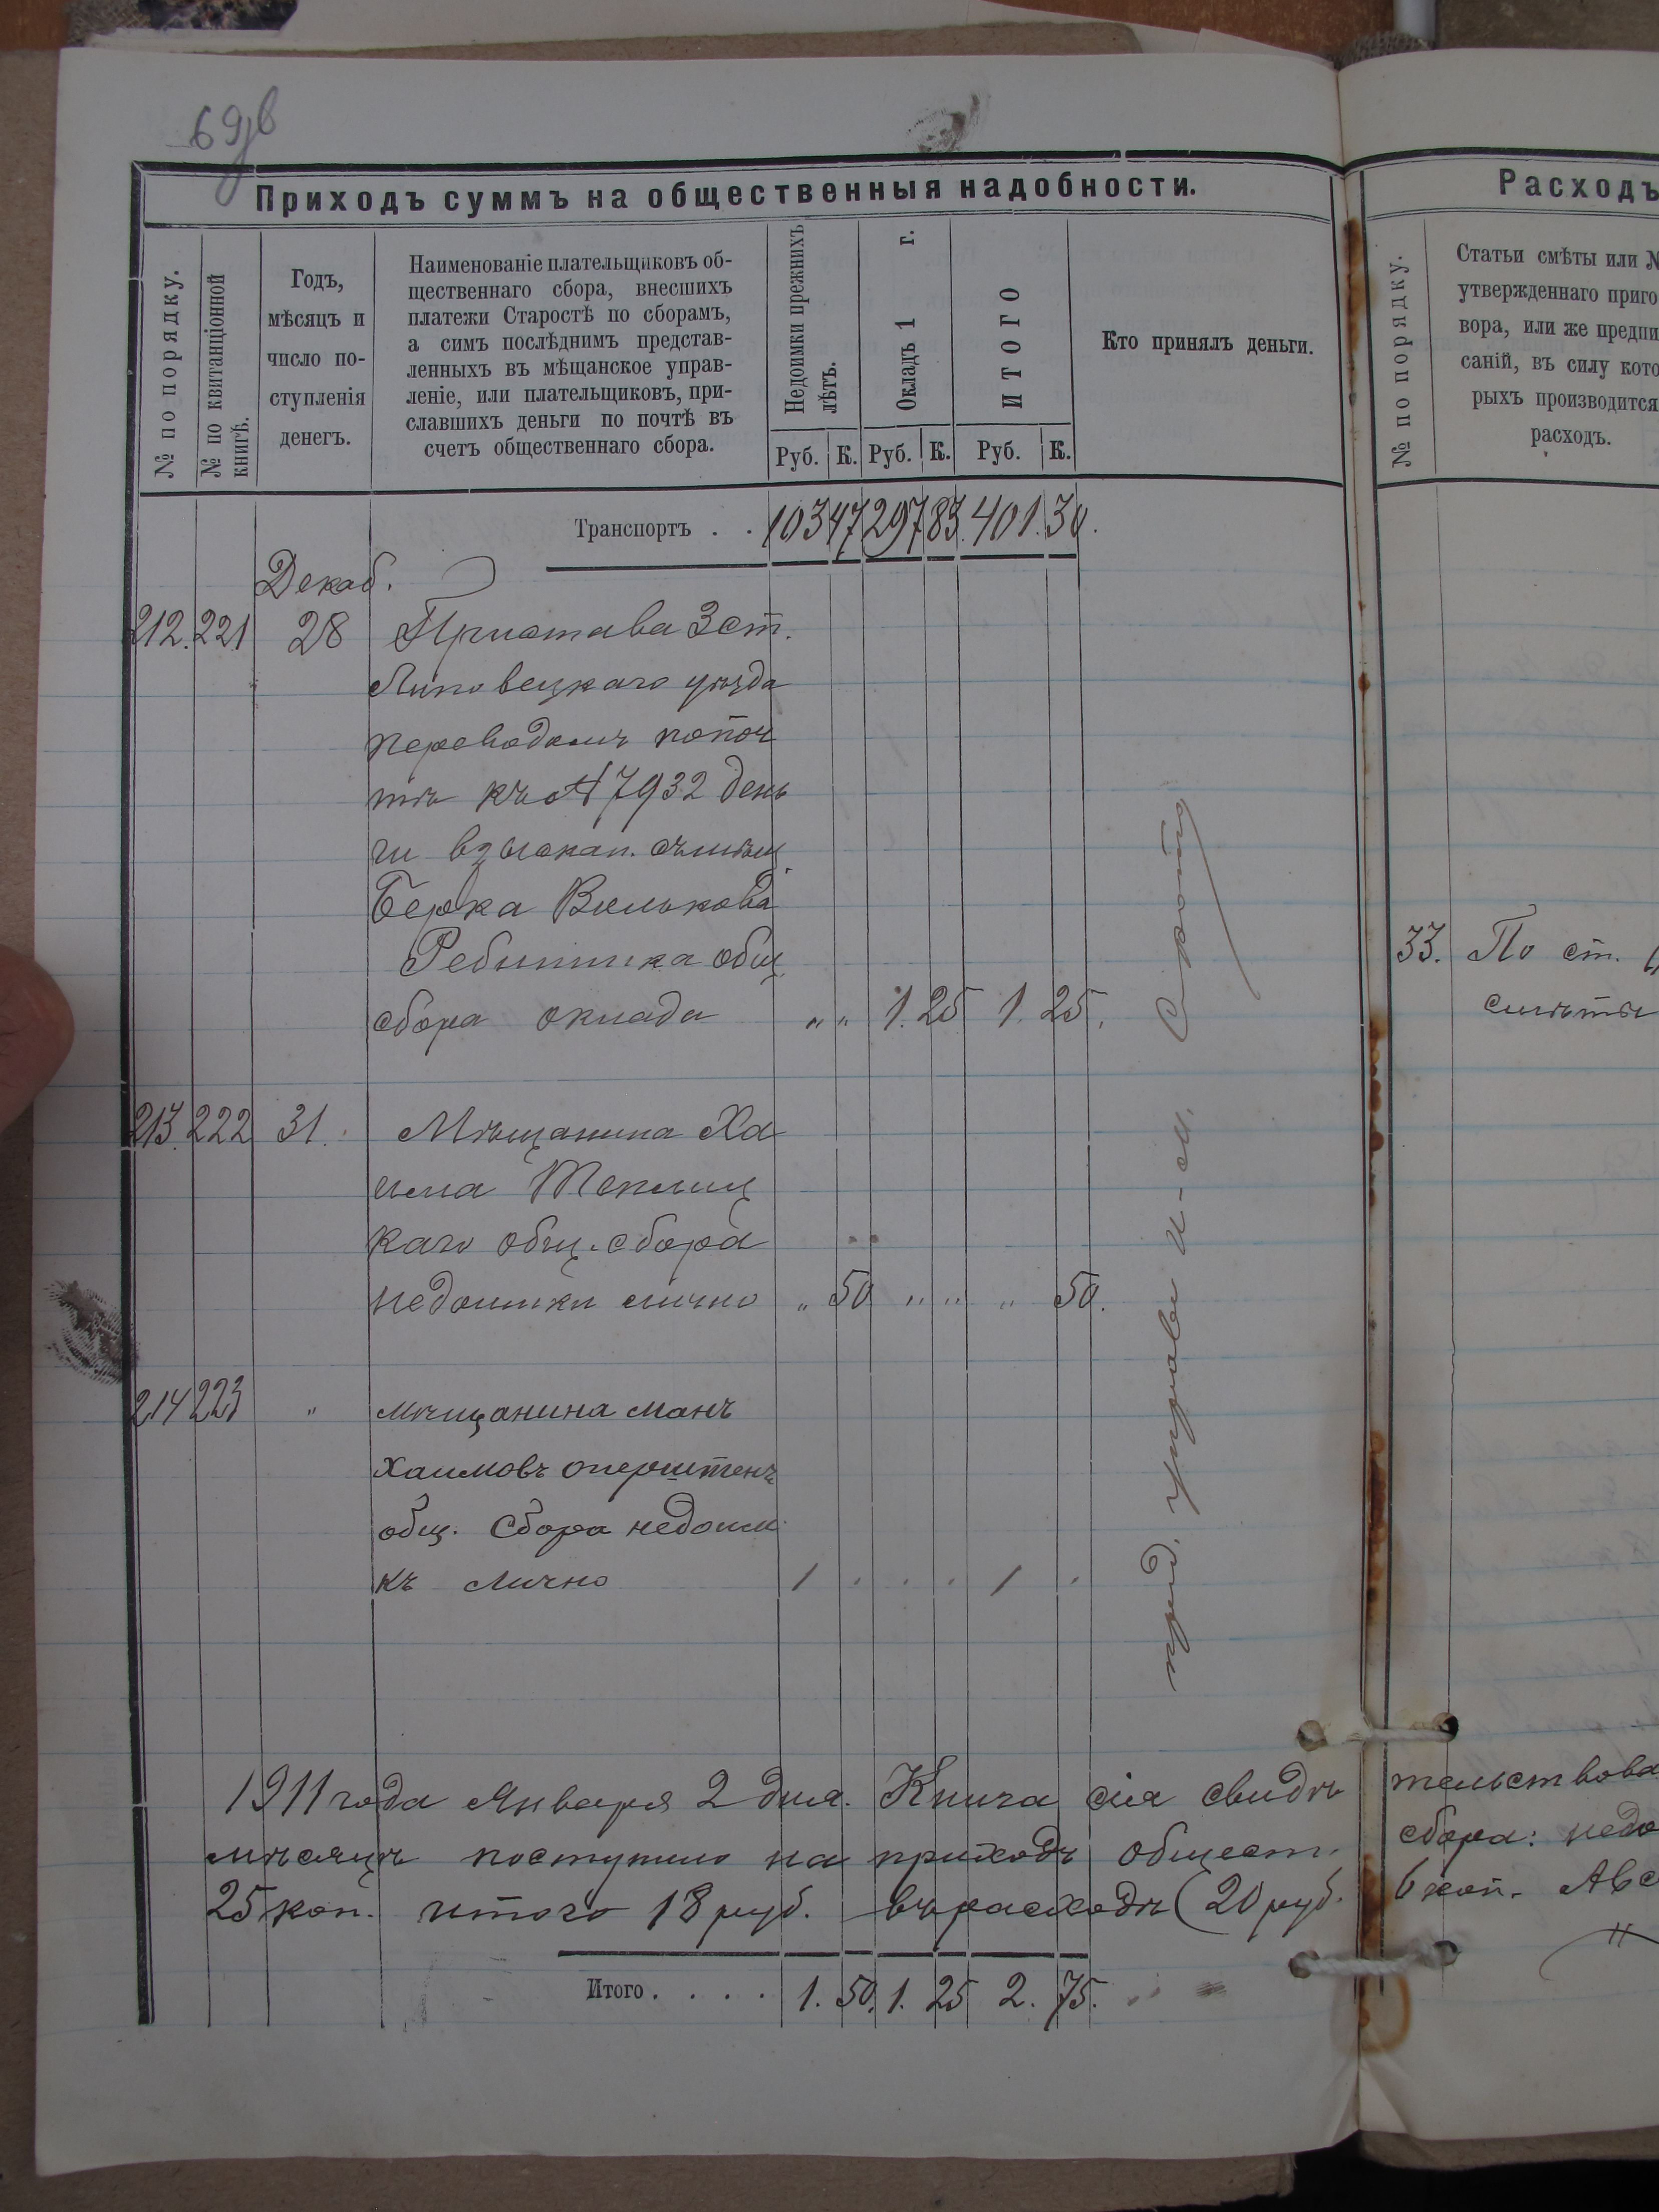 69об
Приходъ суммъ на общественныя надобности.
№ по порядку.
№ по квитанціонной книгѣ.
Годъ,
мѣсяцъ и
число по-
ступленія
денегъ.
Наименованіе плательщиковъ об-
щественнаго сбора, внесшихъ
платежи Старостѣ по сборамъ,
а симъ послѣднимъ представ-
ленныхъ въ мѣщанское управ-
леніе, или плательщиковъ, при-
славшихъ деньги по почтѣ въ
счетъ общественнаго сбора.
Недоимки прежнихъ
лѣтъ.
Окладъ 1 г.
ИТОГО
Руб. К. Руб. К. Руб. К.
Кто принялъ деньги.
Транспортъ . . 103 47 297 83. 401. 30.
Декаб.
212. 221 28 Пристава 3 ст.
Липовецкаго уѣзда
переводомъ по поч
тѣ къ № 7932 день
ги взыскан. съ мѣщ.
Берка Вилькова
общ
сбора оклада „ „ 1. 25 1. 25.
213. 222 31. Мѣщанина Ха
има Теплиц
каго общ. сбора
недоимки лично „ 50 „ „ „ 50.
214 223 „ мѣщанина Манъ
Хаимовъ
общ. Сбора недоим
къ лично 1 . . . 1 .
1911 года Января 2 дня. Книга сія свидѣ
мѣсяцѣ поступило на приходъ общест.
25 коп. итого 18 руб. въ расходъ (20 руб.
Итого . . . . 1. 50. 1. 25 2. 75.
Расходъ
№ по порядку.
Статьи смѣты или №
утвержденнаго приго
вора, или же предпи
саній, въ силу кото
рыхъ производится
расходъ.
33. По ст.
смѣты
тельствова
сбора: недо
6 коп. Авс